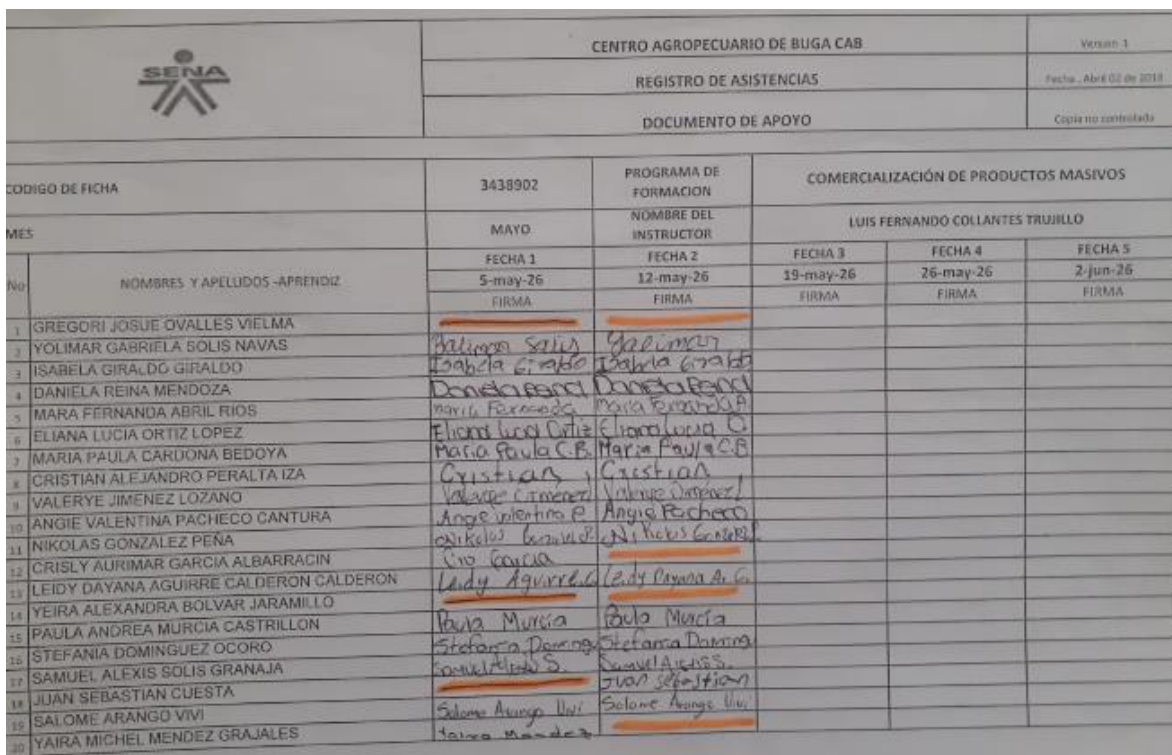 SENA
CENTRO AGROPECUARIO DE BUGA CAB
Version 1
REGISTRO DE ASISTENCIAS
Fecha . Abril 02 de 2018
DOCUMENTO DE APOYO
Copia no controlada
CODIGO DE FICHA 3438902 PROGRAMA DE FORMACION COMERCIALIZACIÓN DE PRODUCTOS MASIVOS
MES MAYO NOMBRE DEL INSTRUCTOR LUIS FERNANDO COLLANTES TRUJILLO
No NOMBRES Y APELLIDOS -APRENDIZ FECHA 1 FECHA 2 FECHA 3 FECHA 4 FECHA 5
5-may-26 12-may-26 19-may-26 26-may-26 2-jun-26
FIRMA FIRMA FIRMA FIRMA FIRMA
1 GREGORI JOSUE OVALLES VIELMA
2 YOLIMAR GABRIELA SOLIS NAVAS Yolimar Solis Yolimar
3 ISABELA GIRALDO GIRALDO Isabela Giraldo Isabela Giraldo
4 DANIELA REINA MENDOZA Daniela Reina Daniela Reina
5 MARA FERNANDA ABRIL RIOS Maria Fernanda Maria Fernanda A
6 ELIANA LUCIA ORTIZ LOPEZ Eliana Lucia Ortiz Eliana Lucia O
7 MARIA PAULA CARDONA BEDOYA Maria Paula C.B Maria Paula C.B
8 CRISTIAN ALEJANDRO PERALTA IZA Cristian Cristian
9 VALERYE JIMENEZ LOZANO Valerye Jimenez Valerye Jimenez
10 ANGIE VALENTINA PACHECO CANTURA Angie valentina P. Angie Pacheco
11 NIKOLAS GONZALEZ PEÑA Nikolas Nikolas Gonzalez
12 CRISLY AURIMAR GARCIA ALBARRACIN Garcia
13 LEIDY DAYANA AGUIRRE CALDERON CALDERON Leidy Aguirre.C Leidy Dayana A. C.
14 YEIRA ALEXANDRA BOLVAR JARAMILLO
15 PAULA ANDREA MURCIA CASTRILLON Paula Murcia Paula Murcia
16 STEFANIA DOMINGUEZ OCORO Stefania Doming Stefania Doming
17 SAMUEL ALEXIS SOLIS GRANAJA Samuel Alexis S. Samuel Alexis S.
18 JUAN SEBASTIAN CUESTA Juan Sebastian
19 SALOME ARANGO VIVI Salome Arango Vivi Salome Arango Vivi
20 YAIRA MICHEL MENDEZ GRAJALES Yaira Mendez